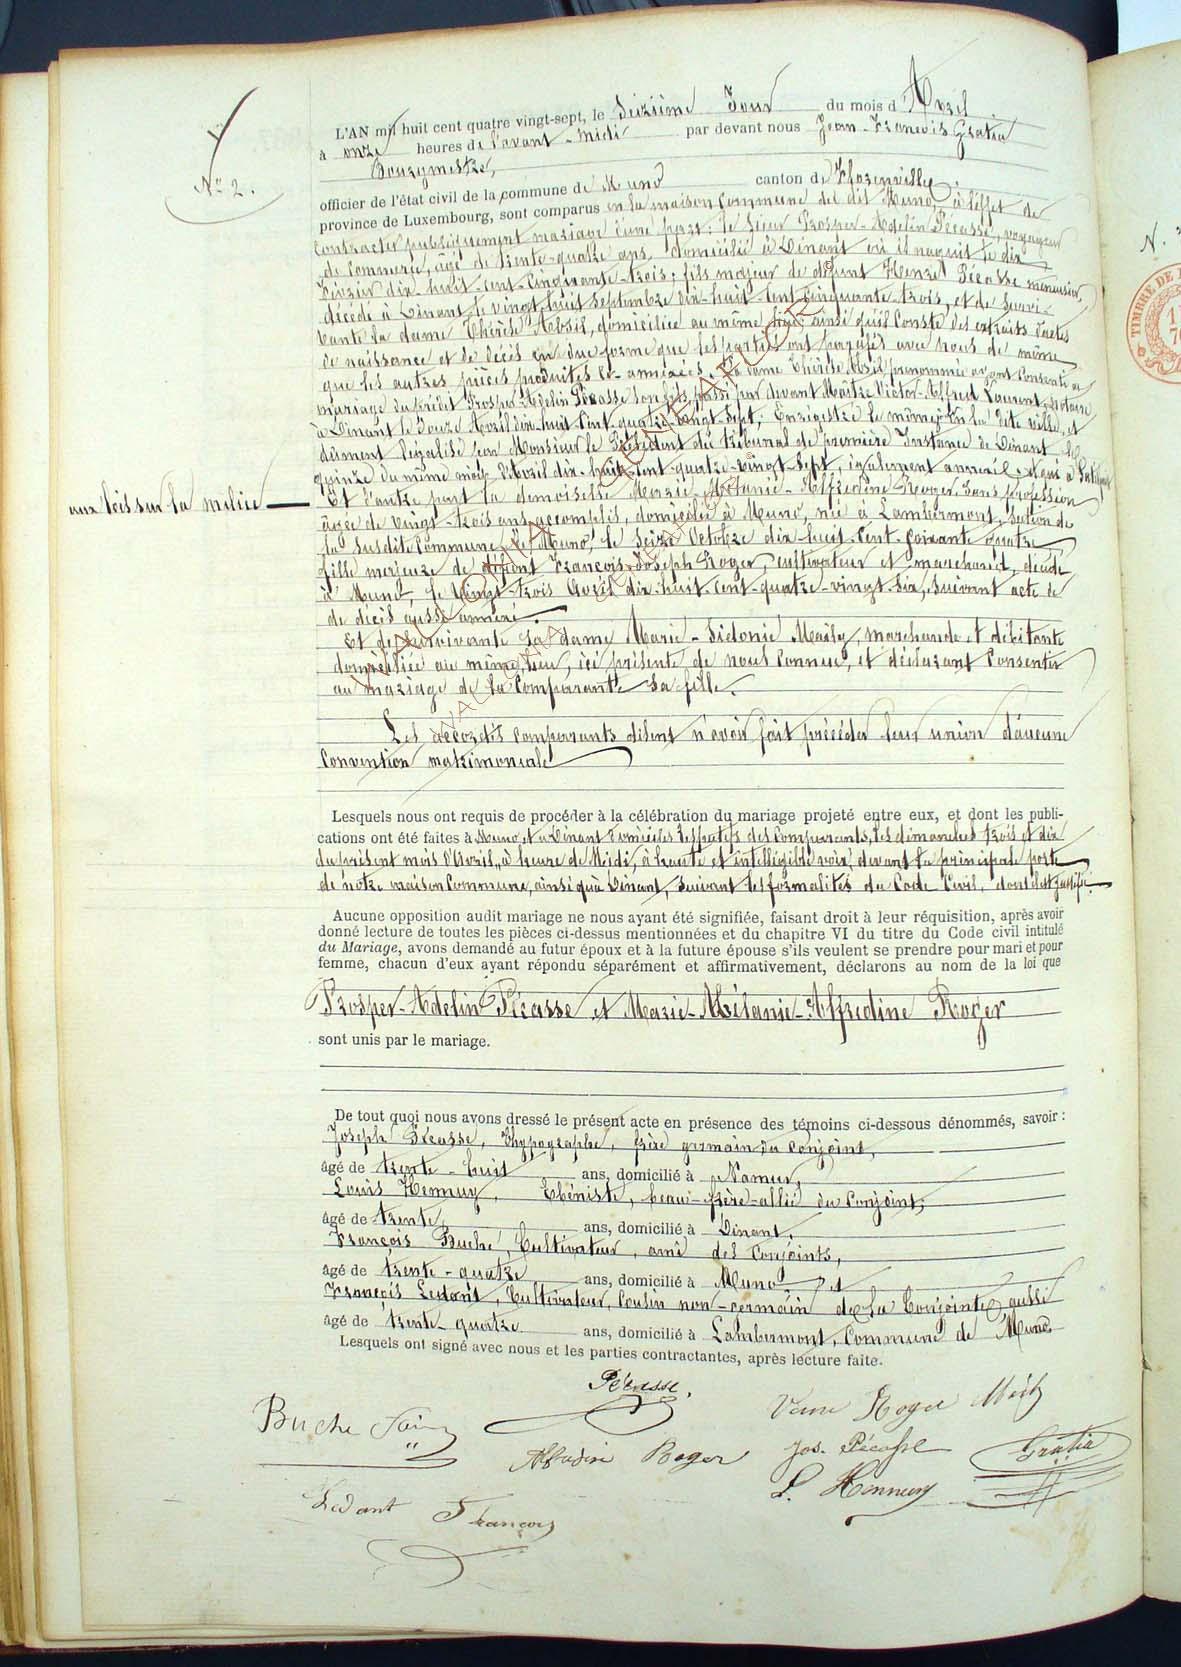 N° 2.
L'AN mil huit cent quatre vingt-sept, le Seizième Jour du mois d'Avril
à onze heures de l'avant-midi par devant nous Jean-François Gratia
Bourgmestre,
officier de l'état civil de la commune de Muno canton de Florenville,
province de Luxembourg, sont comparus en la maison commune del dit Muno, à l'effet de
contracter publiquement mariage d'une part: le Sieur Prosper-Adelin Pécasse, voyageur
de commerce, âgé de trente-quatre ans, domicilié à Dinant où il naquit le dix
Février dix-huit-cent-cinquante-trois; fils majeur de défunt Henri Pécasse menuisier,
décédé à Dinant, le vingt-huit Septembre dix-huit-cent cinquante trois, et de survi-
vante la dame Thérèse Absil, domiciliée au même lieu ainsi qu'il conste des extraits d'actes
de naissance et de décès en due forme que les parties ont paraphés avec nous de même
que les autres pièces produites et annexées. La dame Thérèse Absil prénommée ayant consenti au
mariage du prédit Prosper-Adelin Pécasse son fils, passé par devant Maître Victor-Alfred Laurent, notaire
à Dinant le douze Avril dix-huit cent-quatre-vingt-sept; Enregistré le même jour en la dite ville, et
dûment légalisé par Monsieur le Président du tribunal de première Instance de Dinant le
quinze du même mois d'Avril dix-huit-cent-quatre-vingt-sept, également annexé, et qui a satisfait
aux lois sur la milice
Et d'autre part la demoiselle Marie-Mélanie-Alfredine Roger, sans profession
âgée de vingt-trois ans accomplis, domiciliée à Muno, née à Lambermont, section de
la susdite commune de Muno, le seize Octobre dix-huit-cent-soixante quatre
fille majeure de défunt François-Joseph Roger, cultivateur et marchand, décédé
à Muno, le Vingt-trois Avril dix-huit-cent-quatre-vingt-six, suivant acte de
de décès aussi annexé.
Et de survivante la dame Marie-Sidonie Mailly, marchande et débitante
domiciliée au même lieu, ici présente, de nous connue, et déclarant consentir
au mariage de la comparante sa fille.
Les décordits comparants disent n'avoir fait précéder leur union d'aucune
convention matrimoniale
Lesquels nous ont requis de procéder à la célébration du mariage projeté entre eux, et dont les publi-
cations ont été faites à Muno et à Dinant domiciles respectifs des comparants, les dimanches trois et dix
du présent mois d'Avril, à heure de Midi, à haute et intelligible voix, devant la principale porte
de notre maison commune, ainsi qu'à Dinant, suivant les formalités du Code Civil, dont il est justifié.
Aucune opposition audit mariage ne nous ayant été signifiée, faisant droit à leur réquisition, après avoir
donné lecture de toutes les pièces ci-dessus mentionnées et du chapitre VI du titre du Code civil intitulé
du Mariage, avons demandé au futur époux et à la future épouse s'ils veulent se prendre pour mari et pour
femme, chacun d'eux ayant répondu séparément et affirmativement, déclarons au nom de la loi que
Prosper-Adelin Pécasse et Marie-Mélanie-Alfredine Roger
sont unis par le mariage.
De tout quoi nous avons dressé le présent acte en présence des témoins ci-dessous dénommés, savoir:
Joseph Pécasse, Thypographe, frère germain du conjoint,
âgé de trente-huit ans, domicilié à Namur,
Louis Hennuy, Ebéniste, beau-frère-allié du conjoint;
âgé de trente, ans, domicilié à Dinant,
François Buché, Cultivateur, ami des conjoints,
âgé de trente-quatre ans, domicilié à Muno et
François Ledant, Cultivateur, cousin non-germain de la conjointe, aussi
âgé de trente-quatre ans, domicilié à Lambermont, commune de Muno
Lesquels ont signé avec nous et les parties contractantes, après lecture faite.
Pécasse.
Buche
Veuve Roger Mailly
Alfredine Roger
Jos. Pécasse
Gratia
L. Hennuy
Ledant François
N.
TIMBRE DE